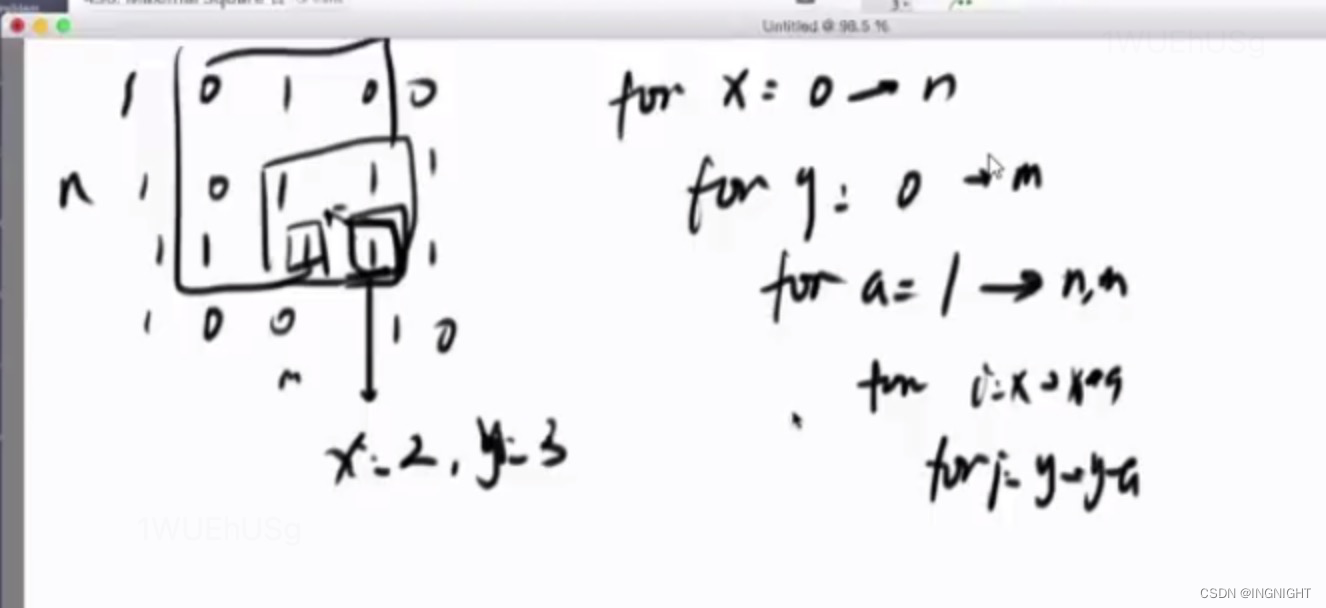 Untitled @ 98.5 %
1WUEhUSg
1 0 1 0 0
for x = 0 → n
n 1 0 1 1 1
for y = 0 → m
1 1 1 1 1
for a = 1 → n,m
1 0 0 1 0
m
for i = x → x-a
x = 2, y = 3
for j = y → y-a
1WUEhUSg
CSDN @INGNIGHT